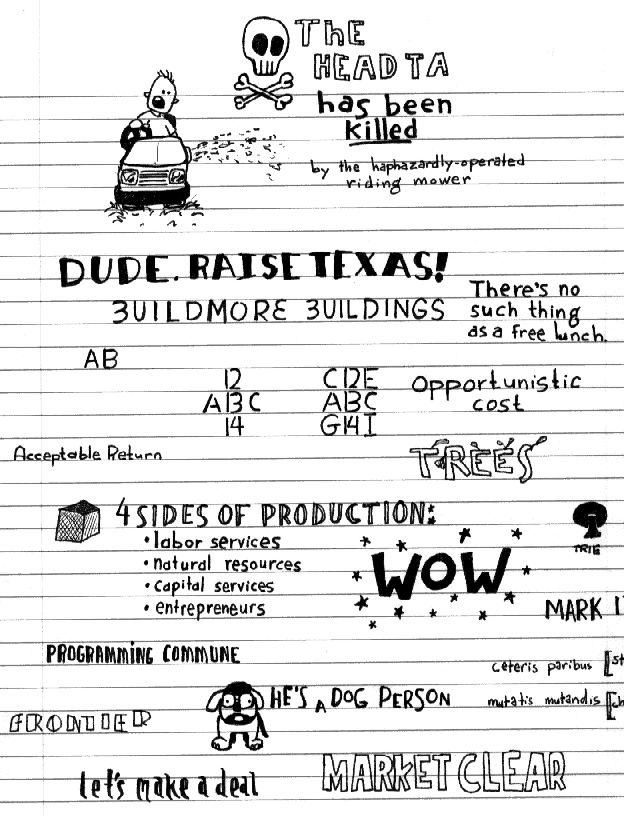 THE
HEAD TA
has been
killed
by the haphazardly-operated
riding mower
DUDE. RAISE TEXAS!
BUILDMORE BUILDINGS
There's no
such thing
as a free lunch.
AB
12
A13C
14
C12E
ABC
G14I
Opportunistic
cost
Acceptable Return
TREES
4 SIDES OF PRODUCTION:
• labor services
• natural resources
• capital services
• entrepreneurs
WOW
TRIE
MARK
PROGRAMMING COMMUNE
ceteris paribus [st
mutatis mutandis [ch
HE'S A DOG PERSON
FRONTIER
Let's make a deal
MARKET CLEAR